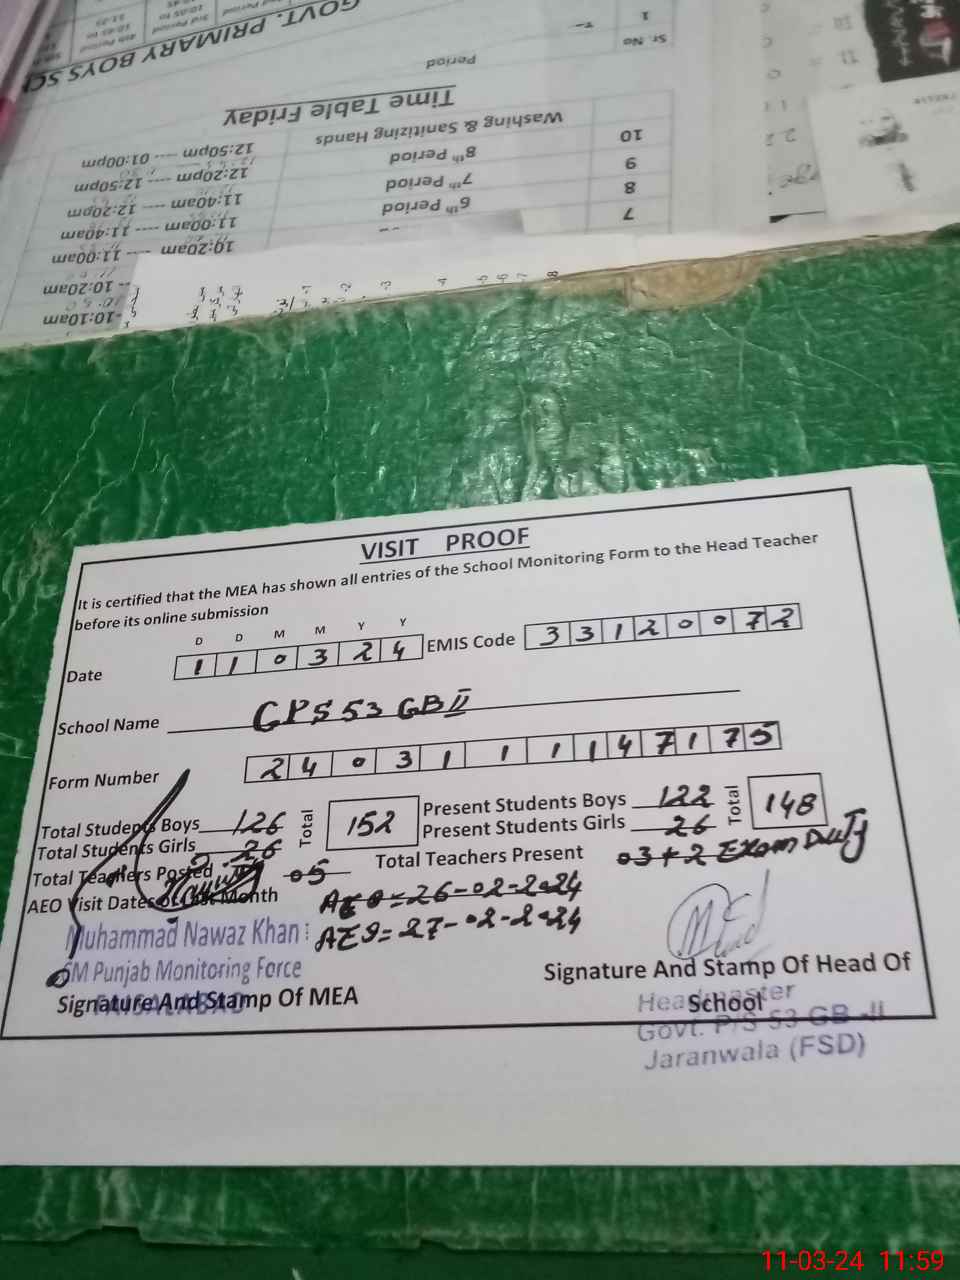 GOVT. PRIMARY BOYS
3rd Period
4th Period
Sr. No
Period
1
Time Table Friday
10 Washing & Sanitizing Hands 12:50pm ---- 01:00pm
9 8th Period 12:20pm ---- 12:50pm
8 7th Period 11:40am ---- 12:20pm
7 6th Period 11:00am ---- 11:40am
10:20am ---- 11:00am
-- 10:20am
-10:10am
VISIT PROOF
It is certified that the MEA has shown all entries of the School Monitoring Form to the Head Teacher
before its online submission
D D M M Y Y
Date 1 1 0 3 2 4 EMIS Code 3 3 1 2 0 0 7 2
School Name GPS 53 GB II
Form Number 2 4 0 3 1 1 1 1 4 7 1 7 5
Total Students Boys 126 Total 152 Present Students Boys 122 Total 148
Total Students Girls 26 Present Students Girls 26
Total Teachers Posted 05 Total Teachers Present 03 + 2 Exam Duty
AEO Visit Dates of Last Month AEO = 26-02-2024
AEO = 27-02-2024
Muhammad Nawaz Khan
SM Punjab Monitoring Force
FAISALABAD
Signature And Stamp Of MEA
Signature And Stamp Of Head Of
School
Headmaster
Govt. P/S 53 GB -II
Jaranwala (FSD)
11-03-24 11:59